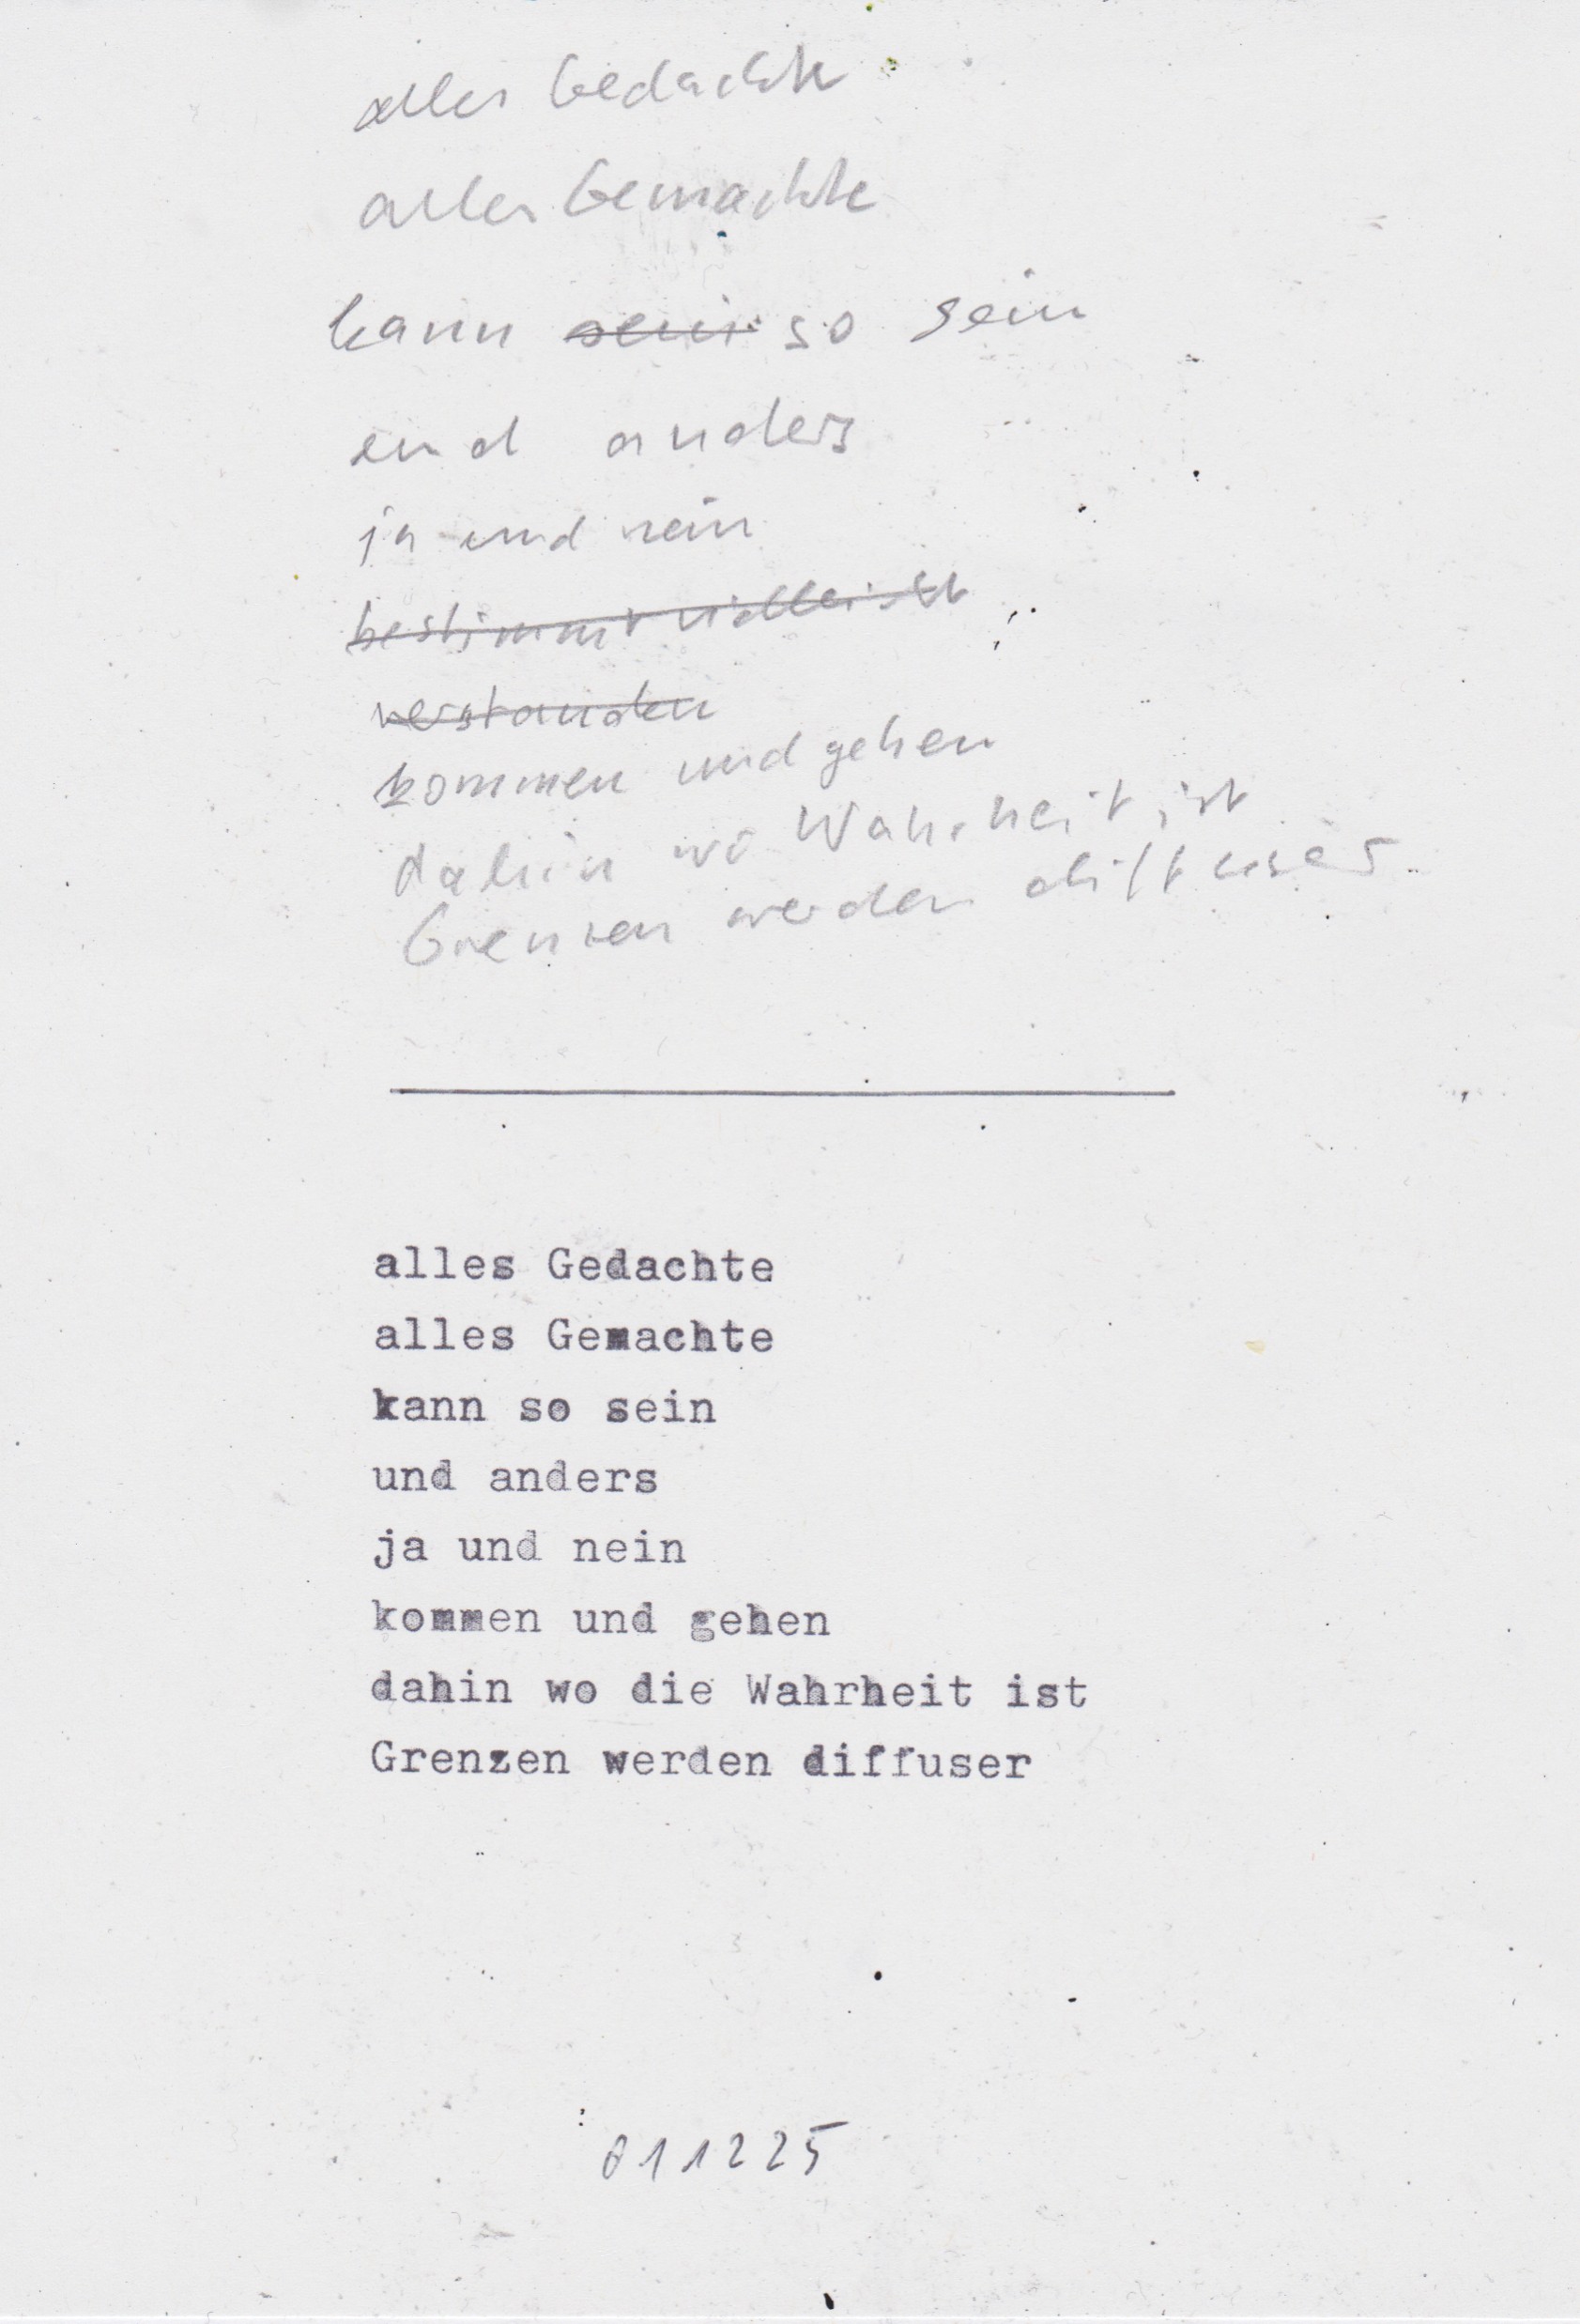 alles Gedachte
alles Gemachte
kann sein so sein
und anders
ja und nein
bestimmt vielleicht
verstanden
kommen und gehen
dahin wo Wahrheit ist
Grenzen werden diffuser
alles Gedachte
alles Gemachte
kann so sein
und anders
ja und nein
kommen und gehen
dahin wo die Wahrheit ist
Grenzen werden diffuser
011225